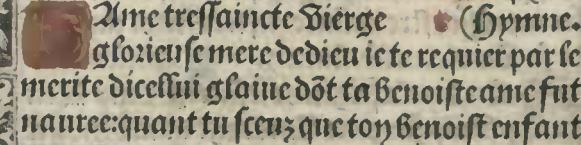 Ame tressaincte Vierge (Hymne.
glorieuse mere dedieu ie te requier par le
merite dicellui glaiue dōt ta benoiste ame fut
nauree: quant tu sceuz que ton benoist enfant